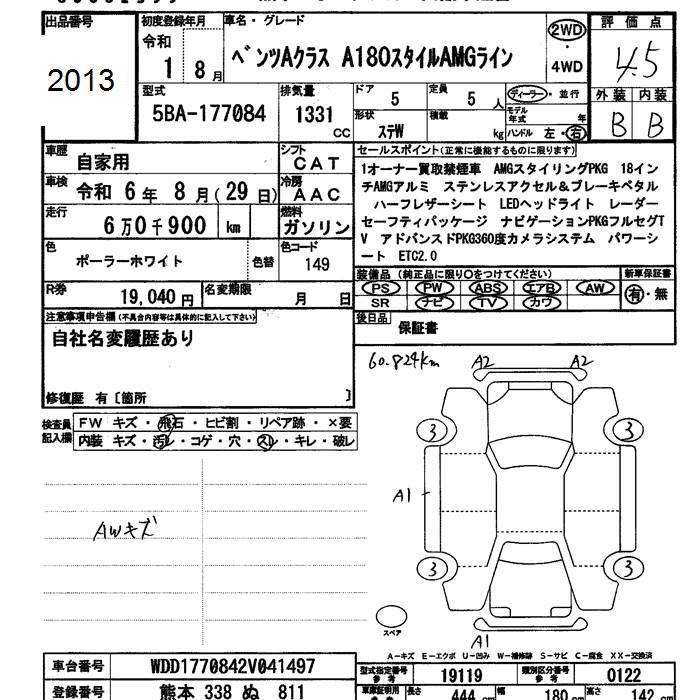 出品番号
2013
初度登録年月
令和
1 8月
車名・グレード
ベンツAクラス A180スタイルAMGライン
2WD
・
4WD
評価点
4.5
外装 内装
B B
型式
5BA-177084
排気量
1331
CC
ドア
5
定員
5 人
形状
ステW
積載
kg
ディーラー・並行
モデル年式 年
ハンドル 左・右
車歴
自家用
シフト
CAT
車検
令和 6年 8月(29日)
冷房
AAC
走行
6万0千900 km
燃料
ガソリン
色
ポーラーホワイト
色替
色コード
149
R券
19,040円
名変期限
月 日
セールスポイント(正常に機能するものに限ります)
1オーナー買取禁煙車 AMGスタイリングPKG 18イン
チAMGアルミ ステンレスアクセル&ブレーキペタル
ハーフレザーシート LEDヘッドライト レーダー
セーフティパッケージ ナビゲーションPKGフルセグT
V アドバンスドPKG360度カメラシステム パワーシ
ート ETC2.0
装備品(純正品に限り○をつけてください)
PS PW ABS エアB AW
SR ナビ TV カワ
新車保証書
有・無
後日品
保証書
注意事項申告欄(不具合内容等は具体的に記入して下さい)
自社名変履歴あり
修復歴 有〔箇所 〕
検査員記入欄
FW キズ・飛石・ヒビ割・リペア跡・×要
内装 キズ・汚レ・コゲ・穴・スレ・キレ・破レ
AWキズ
60.824km
A2 A2
3 3
A1
3 3
スペア
A1
A-キズ E-エクボ U-凹み W-補修跡 S-サビ C-腐食 XX-交換済
車台番号
WDD1770842V041497
登録番号
熊本 338 ぬ 811
型式指定番号
参考
19119
類別区分番号
参考
0122
車庫証明用
参考
長さ 444 cm 幅 180 cm 高さ 142 cm